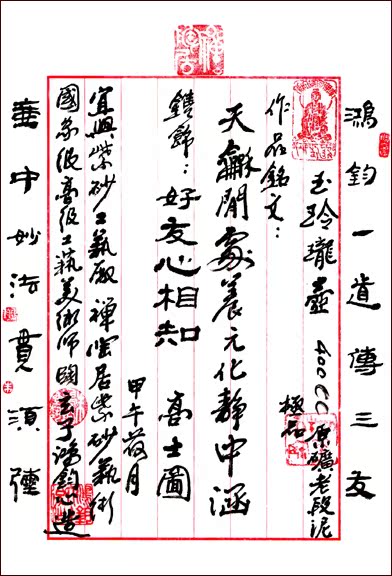 鴻鈞一道傳三友
玉玲瓏壺 400CC 原礦老段泥
極品
作品銘文：
天龢閒氣養元化靜中涵
鐫飾：好友心相知 高士圖
甲午荷月
宜興紫砂工藝廠禪陶居紫砂藝術
國家級高級工藝美術師
鴻鈞 造
華中妙法貫須彌